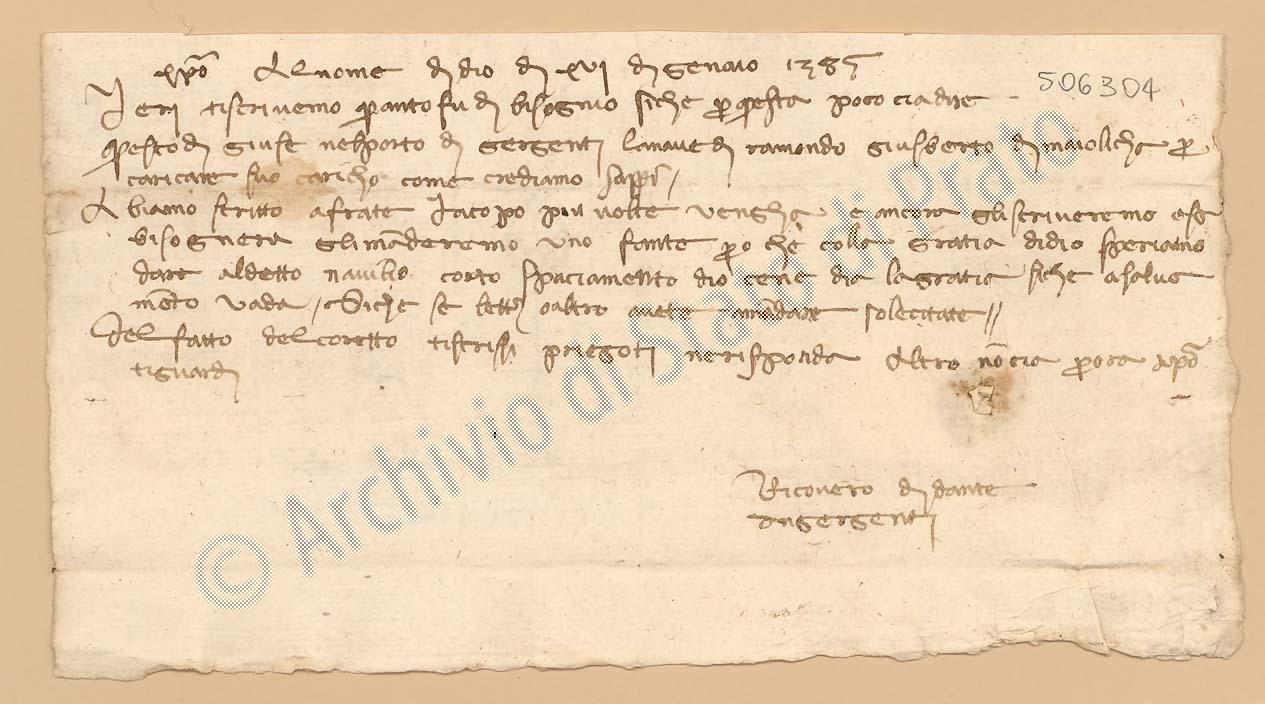 xpō Al nome di dio di xvi di Gennaio 1385
506304
Ieri tiscrivemo quanto fu di bisognio siche p questa poco cia dire
questo di giuse nelporto di Gergenti lanave di ramondo Giusberto di maiolicha p
caricare suo caricho come crediamo sappi /
Abiamo scritto afrate Iacopo piu volte vengha e ancora gliscriveremo ese
bisognera gli māderemo uno fante po che colla Gratia didio speriamo
dare aldetto navilio corto spaciamento dio cene dia lagratia siche asalva
mēto vada / Siche se lettr oaltro avete amādare solecitate //
Del fatto delcoretto tiscrissi priegoti nerisponda Altro nō cia p ora xpō
tiguardi
Ricovero di dante
in gergenti
© Archivio di Stato di Prato